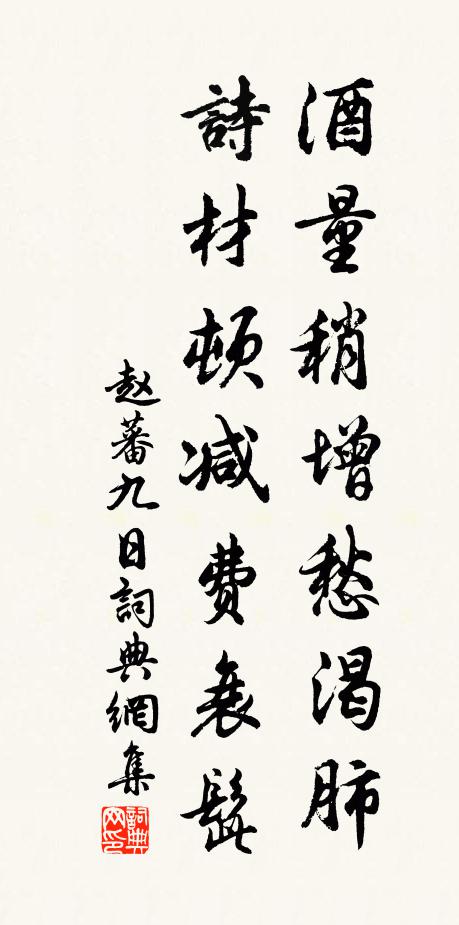 酒量稍增愁渴肺
詩材頓减费衰髭
赵蕃九日詞典網集
詞典网印